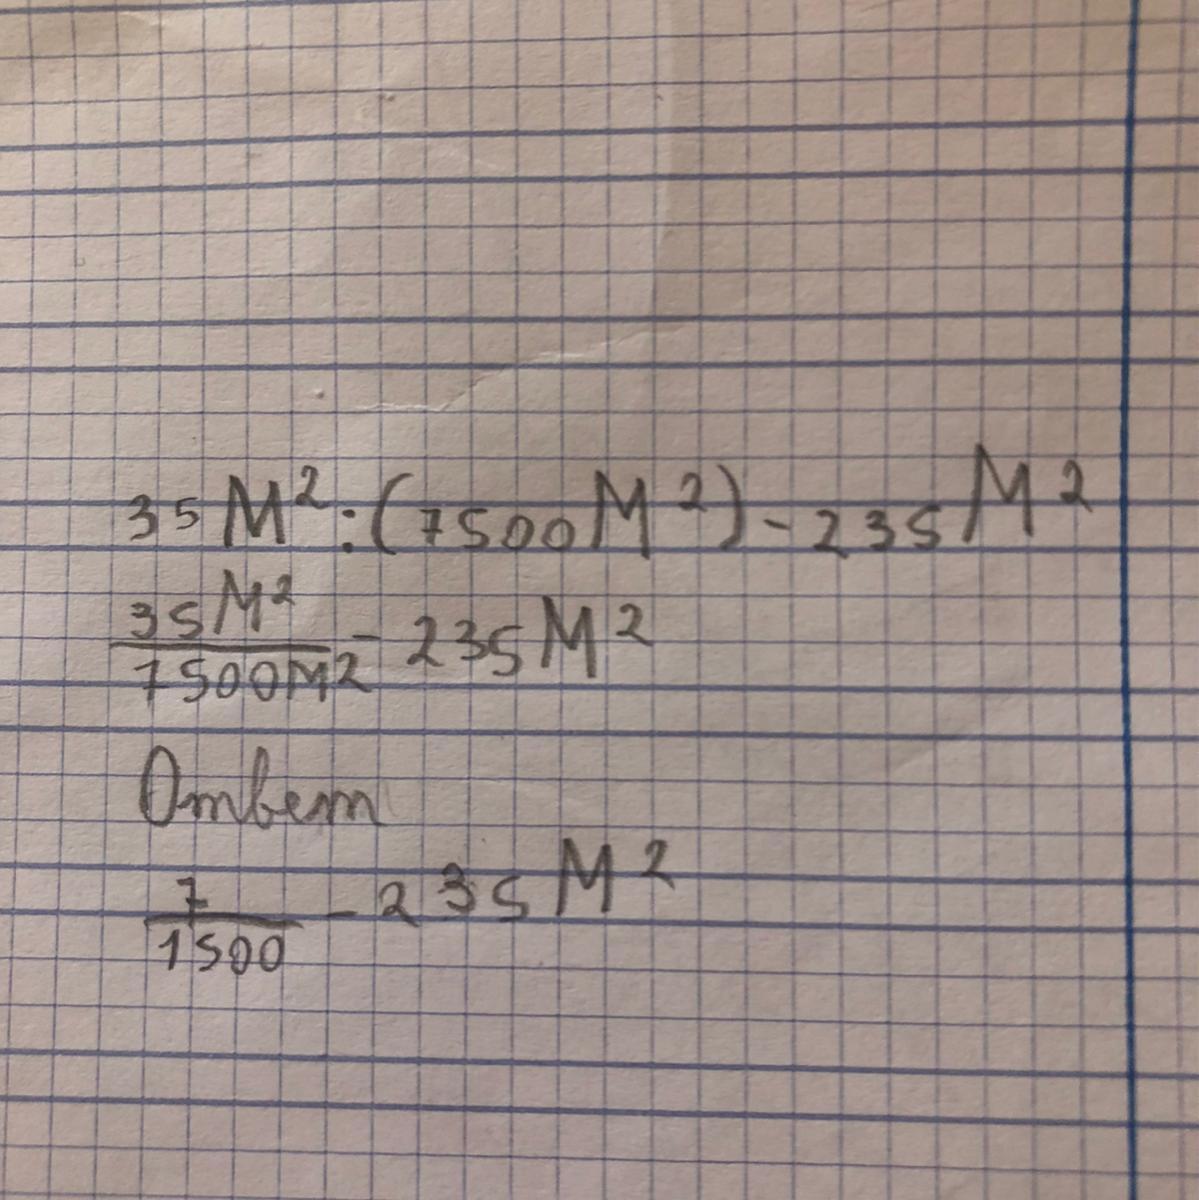 35 М²:(7500М²)-235М²
35М²/7500М² - 235М²
Ответ
7/1500 - 235 М²